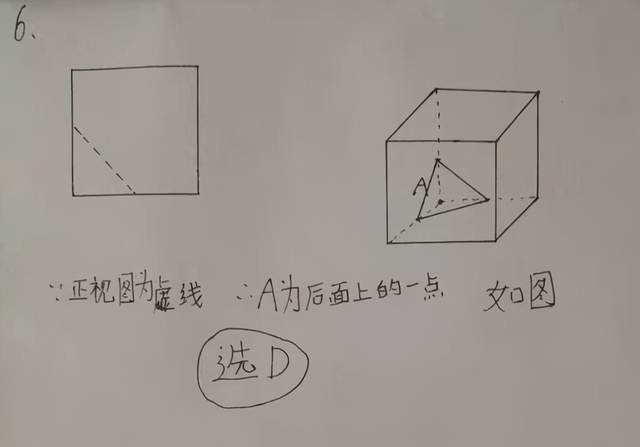 6、
A
∵正视图为虚线 ∴A为后面上的一点 如图
选D